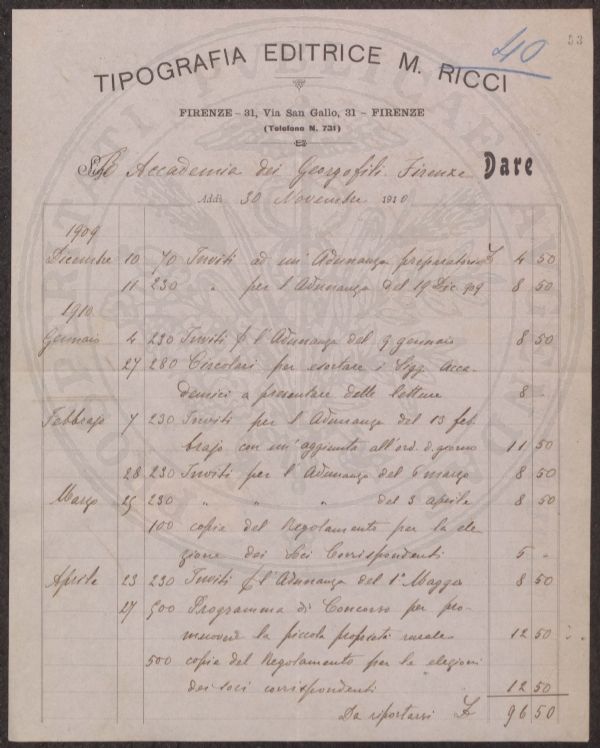 40
53
TIPOGRAFIA EDITRICE M. RICCI
FIRENZE - 31, Via San Gallo, 31 - FIRENZE
(Telefono N. 731)
Accademia dei Georgofili Firenze Dare
Addì 30 Novembre 1910
1909
Dicembre 10 70 Inviti ad un' Adunanza preparatoria £ 4 50
11 230 " per l'Adunanza del 19 Dic 909 8 50
1910
Gennaio 4 230 Inviti p l'Adunanza del 9 gennaio 8 50
27 280 Circolari per esortare i Sigg. Acca-
demici a presentare delle letture 8 -
Febbrajo 7 230 Inviti per l'Adunanza del 13 feb
brajo con un'aggiunta all'ord. d. giorno 11 50
28 230 Inviti per l'Adunanza del 6 marzo 8 50
Marzo 25 230 " " " del 3 aprile 8 50
100 copie del Regolamento per la ele-
zione dei Soci Corrispondenti 5 -
Aprile 23 230 Inviti p l'Adunanza del 1° Maggio 8 50
27 500 Programma di Concorso per pro-
muovere la piccola proprietà rurale 12 50
500 copie del Regolamento per le elezioni
dei soci corrispondenti 12 50
Da riportarsi £ 96 50